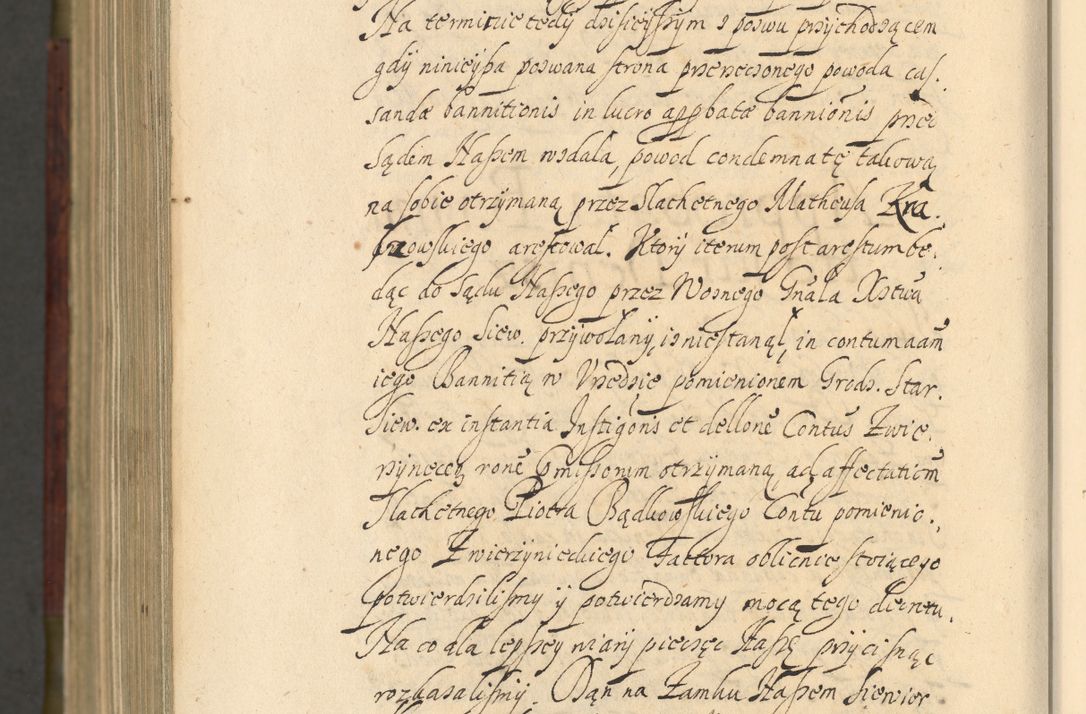 Na terminie tedÿ dzisieÿszym z pozwu przÿchodzącem
gdÿ ninieÿsza pozwana strona przerzeczonego powoda cas.
sandæ bannitionis in lucro apprbatæ bannionis przed
Sądem Naszem wzdala, powod condemnatę takową
na sobie otrzÿmaną przez Slachetnego Matheusa Kra.
szowskiego arestował. Ktorÿ iterum post arestum bę.
dąc do Sądu Naszego przez Woznego Gnãla Xstwa
Naszego Siew. przÿwołanÿ, iz nie stanął, in contumaam
iego Bannitią w Vrzędzie pomienionem Grodz. Star.
Siew. ex instantia Instigõris et dellonẽ Contus Zwie.
rzÿnecen ronẽ pmissorum otrzÿmaną, ad affectatiẽm
Slachetnego Piotra Bądkowskiego Contu pomienio.
nego Zwierzÿnieckiego Factora oblicznie stoiącego
potwierdziliśmÿ ÿ potwierdzamÿ mocą tego decretu.
Na co dla lepszeÿ wiarÿ pieczęć Naszę przÿcisnąc
rozkazaliśmÿ. Dan na Zamku Naszem Siewier